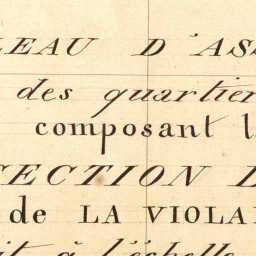 LEAU D'ASS
des quartier
composant l
SECTION D
de LA VIOLA
it à l'échelle